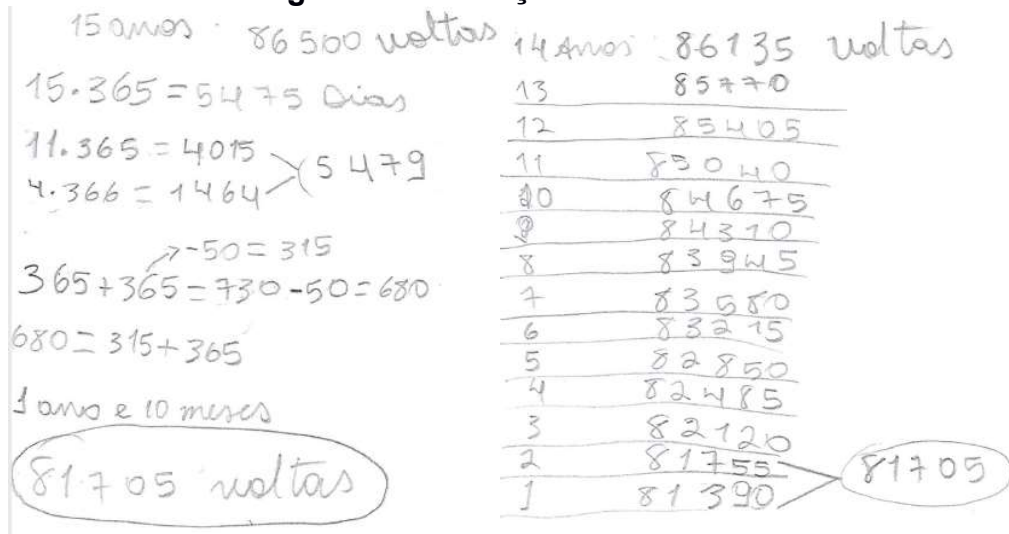 15 anos : 86 500 voltas
15.365 = 5475 Dias
11.365 = 4015
4.366 = 1464
5 479
-50 = 315
365+365=730-50=680
680=315+365
1 ano e 10 meses
81705 voltas
14 Anos : 86135 voltas
13 85770
12 85405
11 85040
10 84675
9 84310
8 83945
7 83580
6 83215
5 82850
4 82485
3 82120
2 81755
1 81390
81705